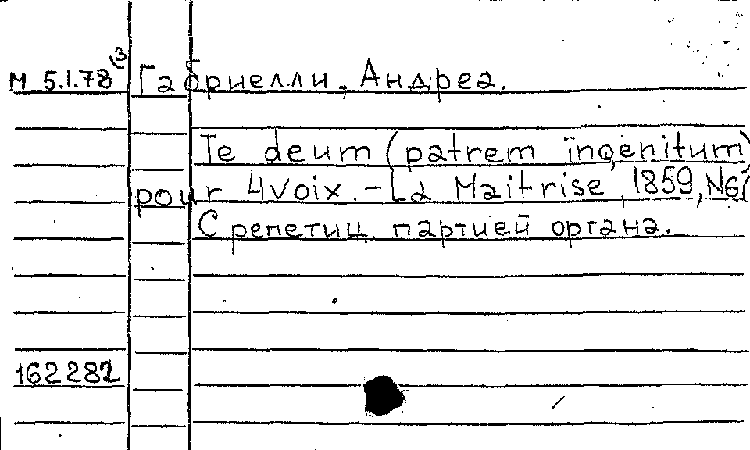 М 5.I.78 Габриелли, Андреа.
Te deum (patrem ingenitum)
pour 4 voix. – La Maitrise, 1859, №
С репетиц. партией органа.
162282